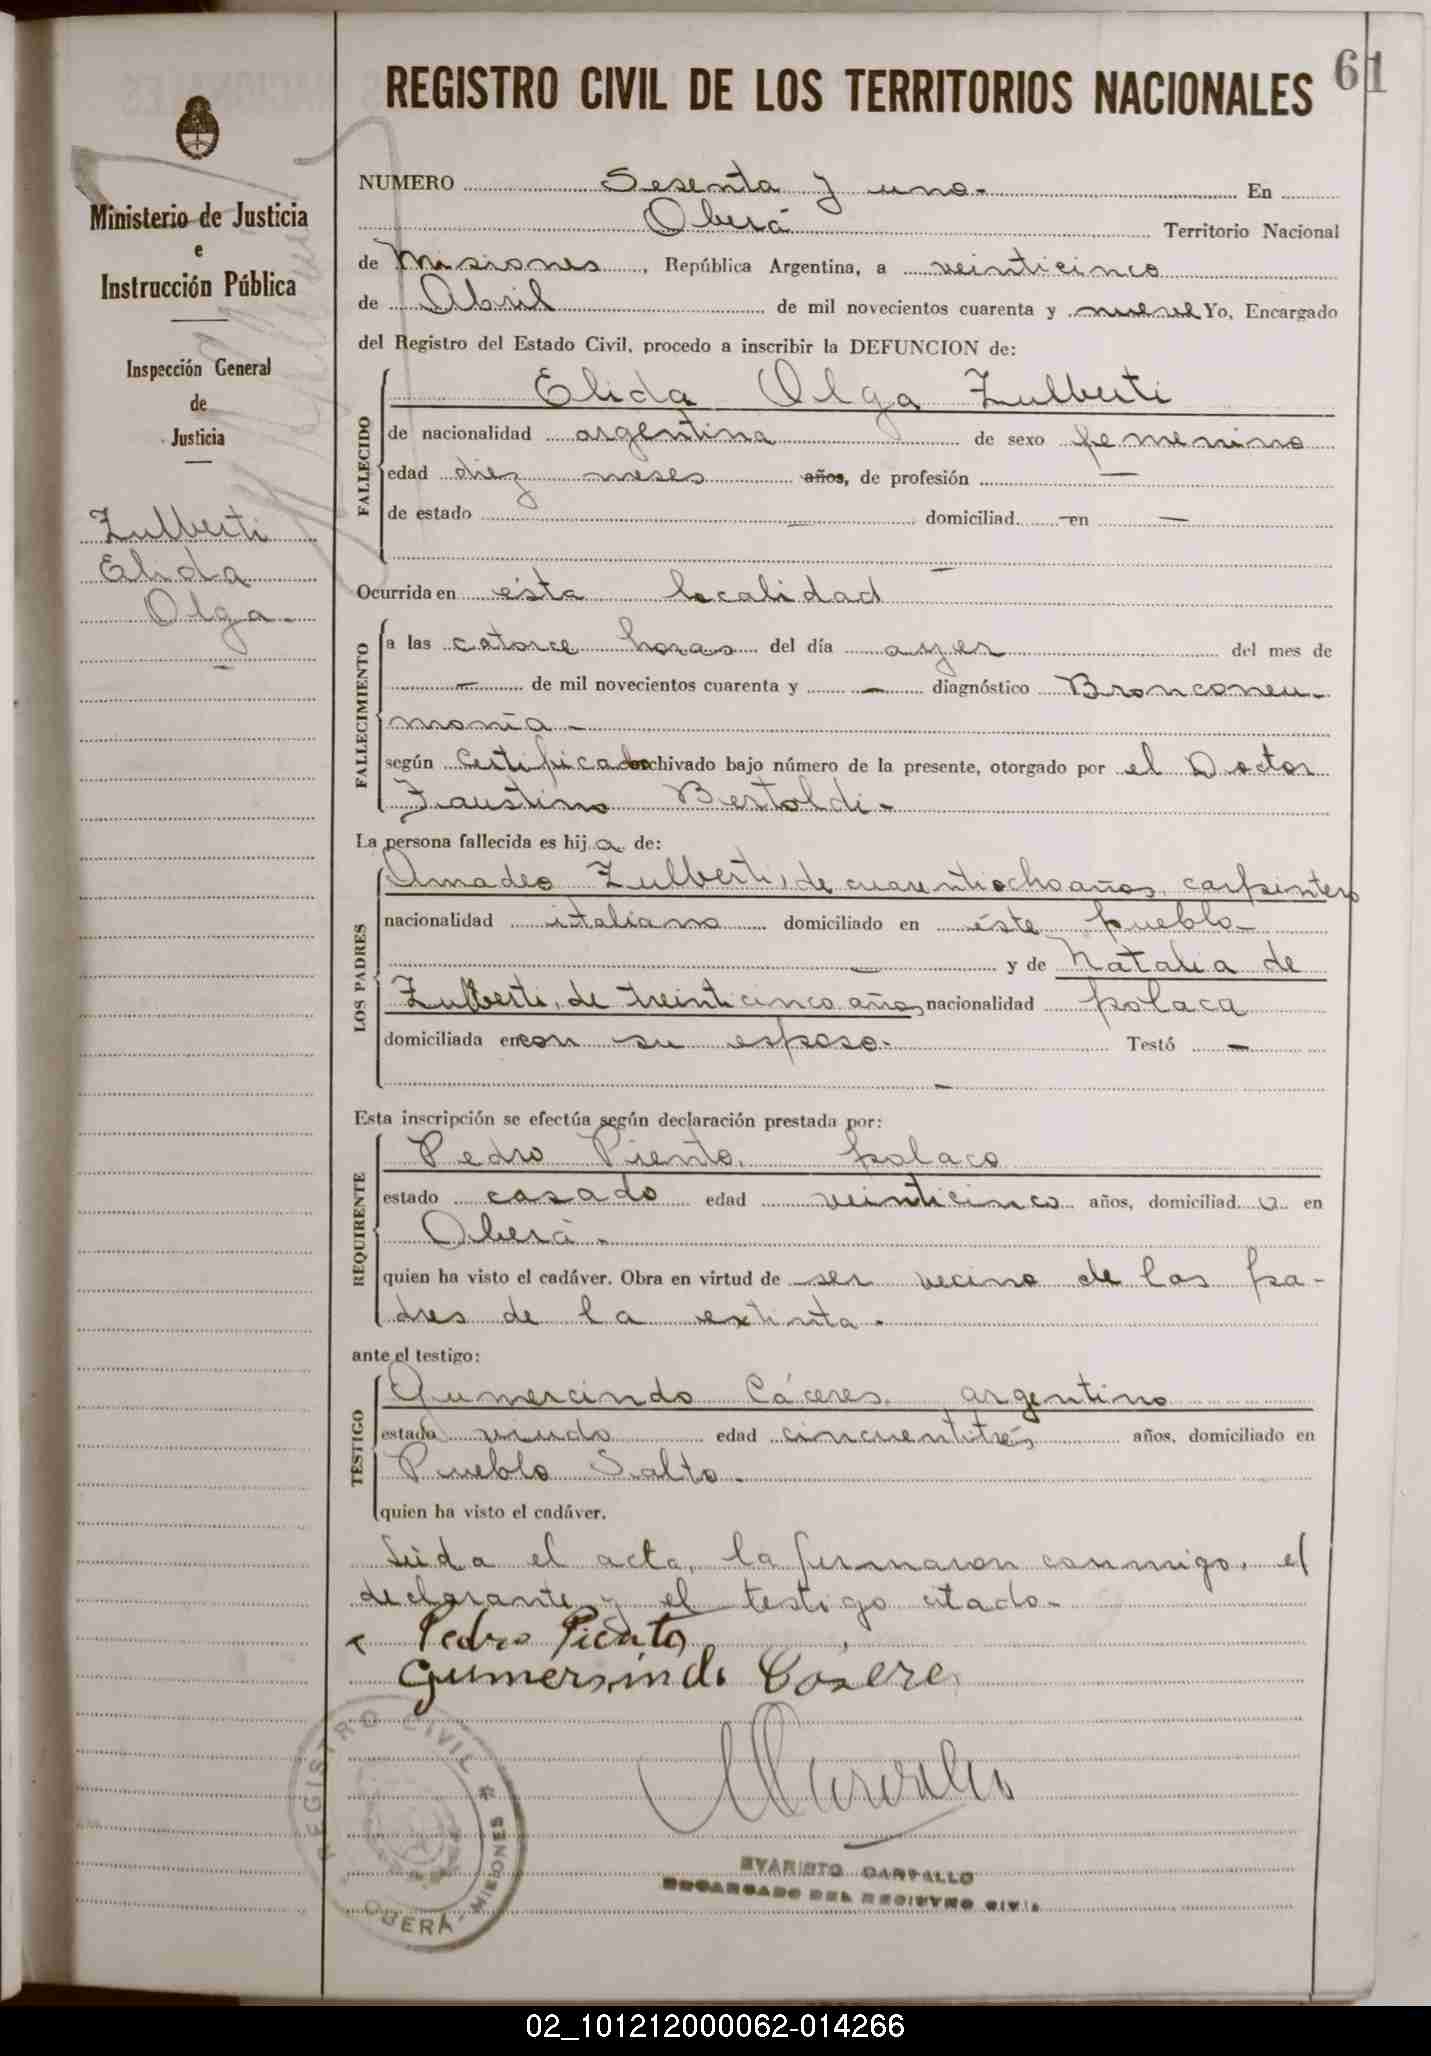 61
REGISTRO CIVIL DE LOS TERRITORIOS NACIONALES
Ministerio de Justicia
e
Instrucción Pública
Inspección General
de
Justicia
Zulberti
Elida
Olga.
NUMERO Sesenta y uno.- En
Oberá Territorio Nacional
de Misiones, República Argentina, a veinticinco
de Abril de mil novecientos cuarenta y nueve Yo, Encargado
del Registro del Estado Civil, procedo a inscribir la DEFUNCION de:
FALLECIDO
Elida Olga Zulberti
de nacionalidad argentina de sexo femenino
edad diez meses años, de profesión —
de estado — domiciliad — en —
Ocurrida en ésta localidad
FALLECIMIENTO
a las catorce horas del día ayer del mes de
— de mil novecientos cuarenta y — diagnóstico Bronconeu-
monía.-
según certificado archivado bajo número de la presente, otorgado por el Doctor
Faustino Bertoldi.-
La persona fallecida es hija de:
LOS PADRES
Amadeo Zulberti, de cuarentiocho años, carpintero
nacionalidad italiano domiciliado en éste pueblo-
— y de Natalia de
Zulberti, de treinticinco años, nacionalidad polaca
domiciliada en con su esposo.- Testó —
Esta inscripción se efectúa según declaración prestada por:
REQUIRENTE
Pedro Piento, polaco
estado casado edad veinticinco años, domiciliado en
Oberá.
quien ha visto el cadáver. Obra en virtud de ser vecino de los pa-
dres de la extinta.
ante el testigo:
TESTIGO
Gumercindo Cáceres, argentino
estado viudo edad cincuentitrés años, domiciliado en
Pueblo Salto.
quien ha visto el cadáver.
Leída el acta, la firmaron conmigo, el
declarante y el testigo citado.
Pedro Piento
Gumersindo Cásere
REGISTRO CIVIL * OBERÁ - MISIONES
EVARISTO CARVALLO
ENCARGADO DEL REGISTRO CIVIL
02_101212000062-014266